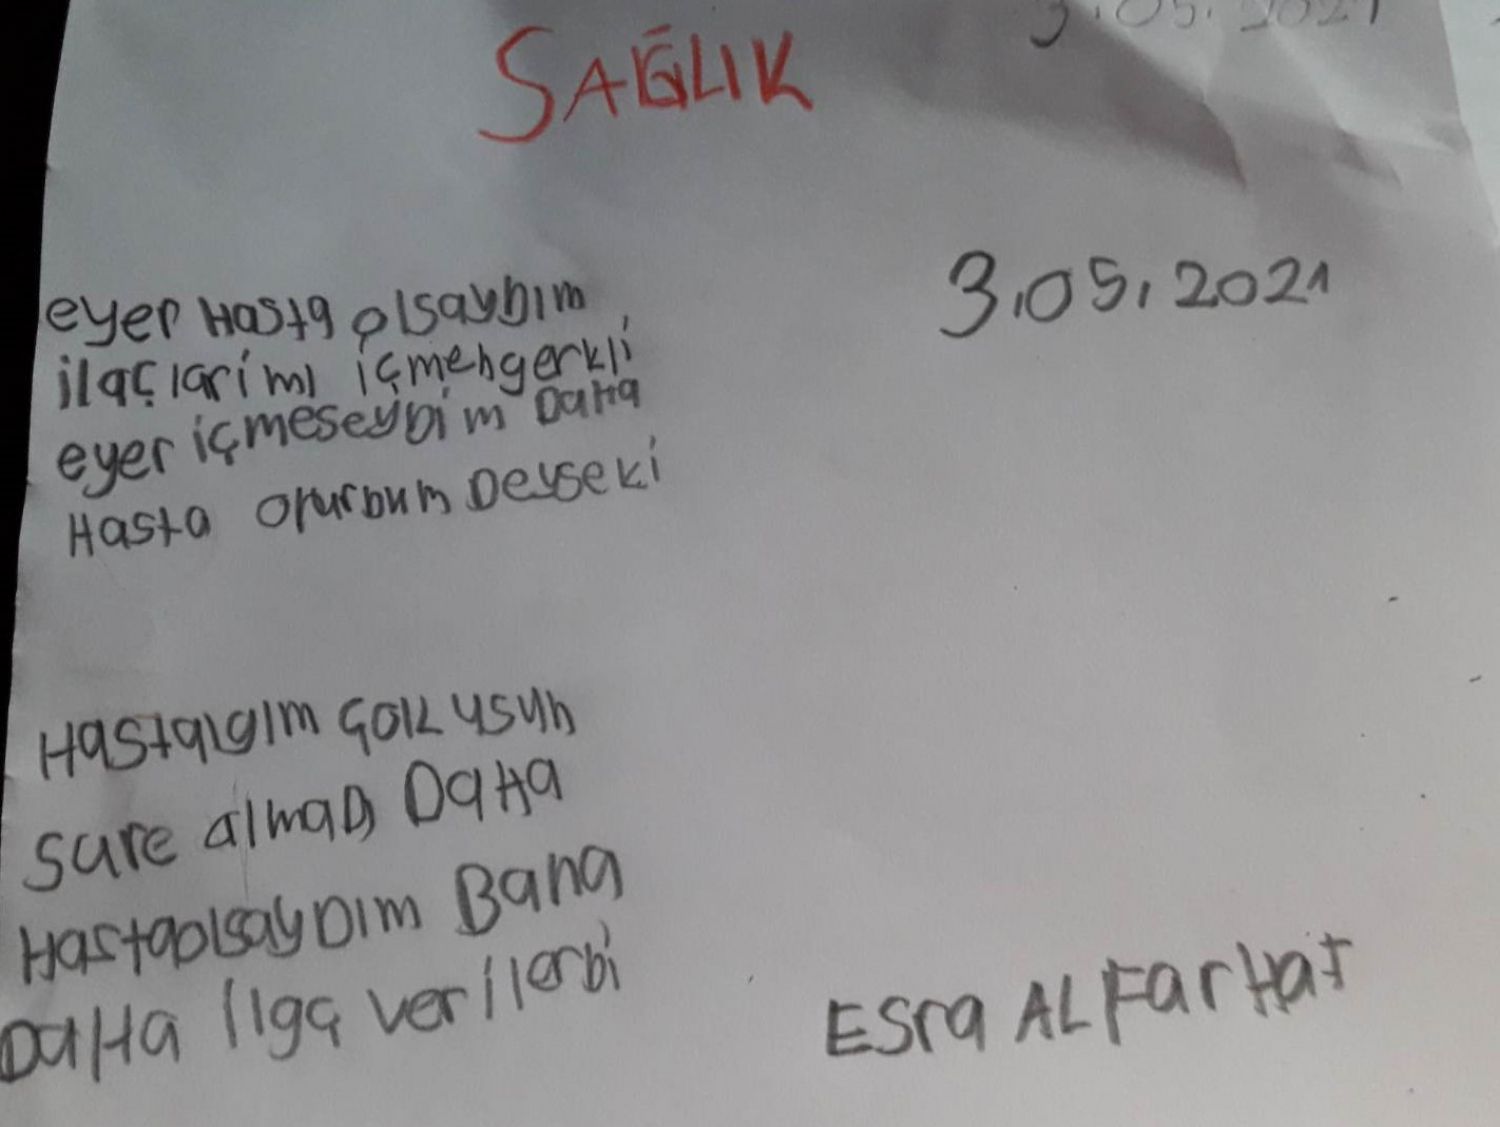 3.05.2021
SAĞLIK
3.05.2021
eyer Hasta olsaydım
ilaçlarimı içmengerkli
eyer içmeseydim DaHa
Hasta olurdum Deyseki
Hastalgım çok usun
sure almadı DaHa
HastaolsayDım Bana
DaHa ilaç verilerdi
Esra AL FarHat